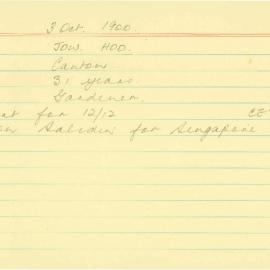 3 Oct. 1900.
Jow. Hoo.
Canton
31 years.
Gardener.
at for 12/12 CE
Saladin for Singapore